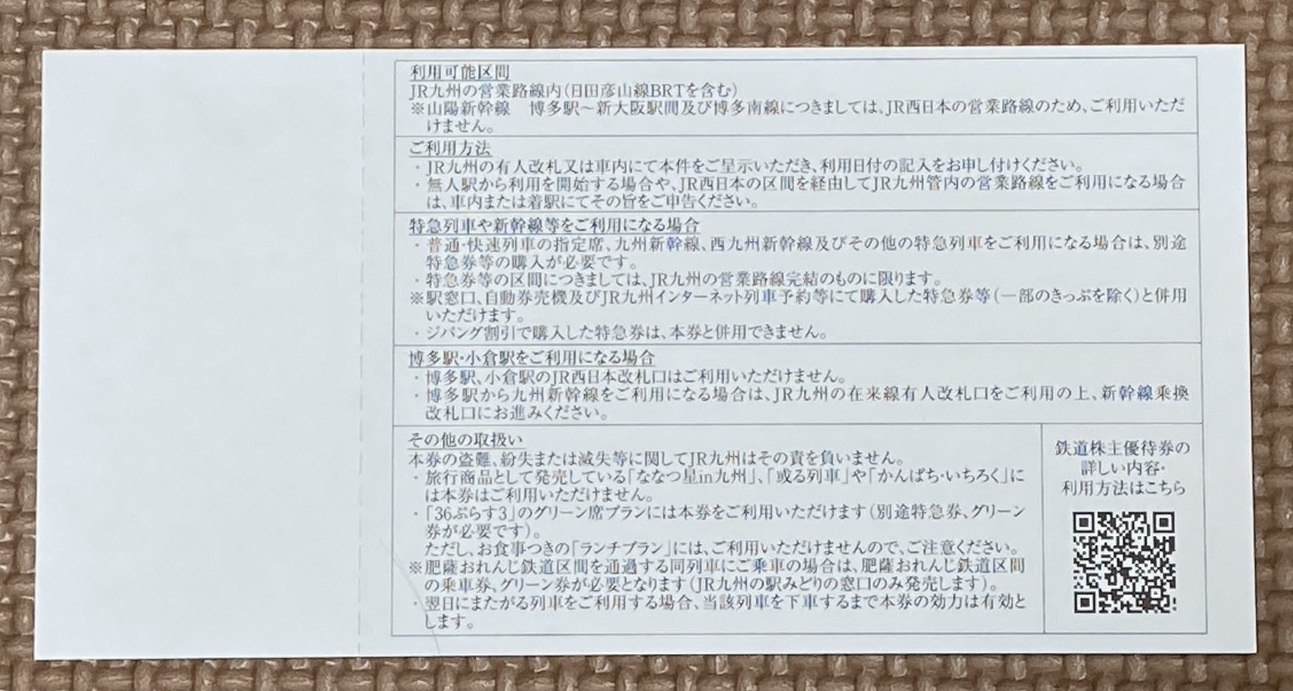 利用可能区間
JR九州の営業路線内(日田彦山線BRTを含む)
※山陽新幹線　博多駅～新大阪駅間及び博多南線につきましては、JR西日本の営業路線のため、ご利用いただ
けません。
ご利用方法
・JR九州の有人改札又は車内にて本件をご呈示いただき、利用日付の記入をお申し付けください。
・無人駅から利用を開始する場合や、JR西日本の区間を経由してJR九州管内の営業路線をご利用になる場合
は、車内または着駅にてその旨をご申告ください。
特急列車や新幹線等をご利用になる場合
・普通・快速列車の指定席、九州新幹線、西九州新幹線及びその他の特急列車をご利用になる場合は、別途
特急券等の購入が必要です。
・特急券等の区間につきましては、JR九州の営業路線完結のものに限ります。
※駅窓口、自動券売機及びJR九州インターネット列車予約等にて購入した特急券等(一部のきっぷを除く)と併用
いただけます。
・ジパング割引で購入した特急券は、本券と併用できません。
博多駅・小倉駅をご利用になる場合
・博多駅、小倉駅のJR西日本改札口はご利用いただけません。
・博多駅から九州新幹線をご利用になる場合は、JR九州の在来線有人改札口をご利用の上、新幹線乗換
改札口にお進みください。
その他の取扱い
本券の盗難、紛失または滅失等に関してJR九州はその責を負いません。
・旅行商品として発売している「ななつ星in九州」、「或る列車」や「かんぱち・いちろく」に
は本券はご利用いただけません。
・「36ぷらす3」のグリーン席プランには本券をご利用いただけます(別途特急券、グリーン
券が必要です)。
ただし、お食事つきの「ランチプラン」には、ご利用いただけませんので、ご注意ください。
※肥薩おれんじ鉄道区間を通過する同列車にご乗車の場合は、肥薩おれんじ鉄道区間
の乗車券、グリーン券が必要となります(JR九州の駅みどりの窓口のみ発売します)。
・翌日にまたがる列車をご利用する場合、当該列車を下車するまで本券の効力は有効と
します。
鉄道株主優待券の
詳しい内容・
利用方法はこちら